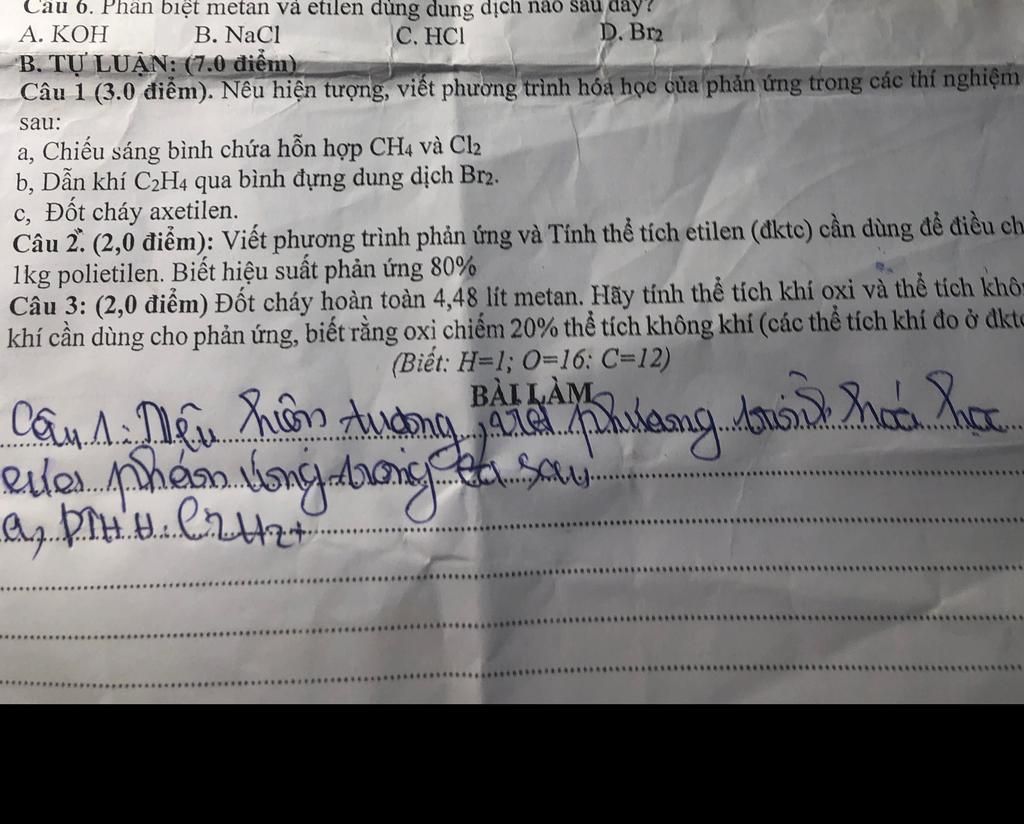 Câu 6. Phân biệt metan và etilen dùng dung dịch nào sau đây?
A. KOH B. NaCl C. HCl D. Br2
B. TỰ LUẬN: (7.0 điểm)
Câu 1 (3.0 điểm). Nêu hiện tượng, viết phương trình hóa học của phản ứng trong các thí nghiệm
sau:
a, Chiếu sáng bình chứa hỗn hợp CH4 và Cl2
b, Dẫn khí C2H4 qua bình đựng dung dịch Br2.
c, Đốt cháy axetilen.
Câu 2. (2,0 điểm): Viết phương trình phản ứng và Tính thể tích etilen (đktc) cần dùng để điều ch
1kg polietilen. Biết hiệu suất phản ứng 80%
Câu 3: (2,0 điểm) Đốt cháy hoàn toàn 4,48 lít metan. Hãy tính thể tích khí oxi và thể tích khôn
khí cần dùng cho phản ứng, biết rằng oxi chiếm 20% thể tích không khí (các thể tích khí đo ở đktc
(Biết: H=1; O=16: C=12)
BÀI LÀM
Câu 1: Nêu hiện tượng, viết phương trình hóa học
của phản ứng trong sau
a, PTHH: C2H2+